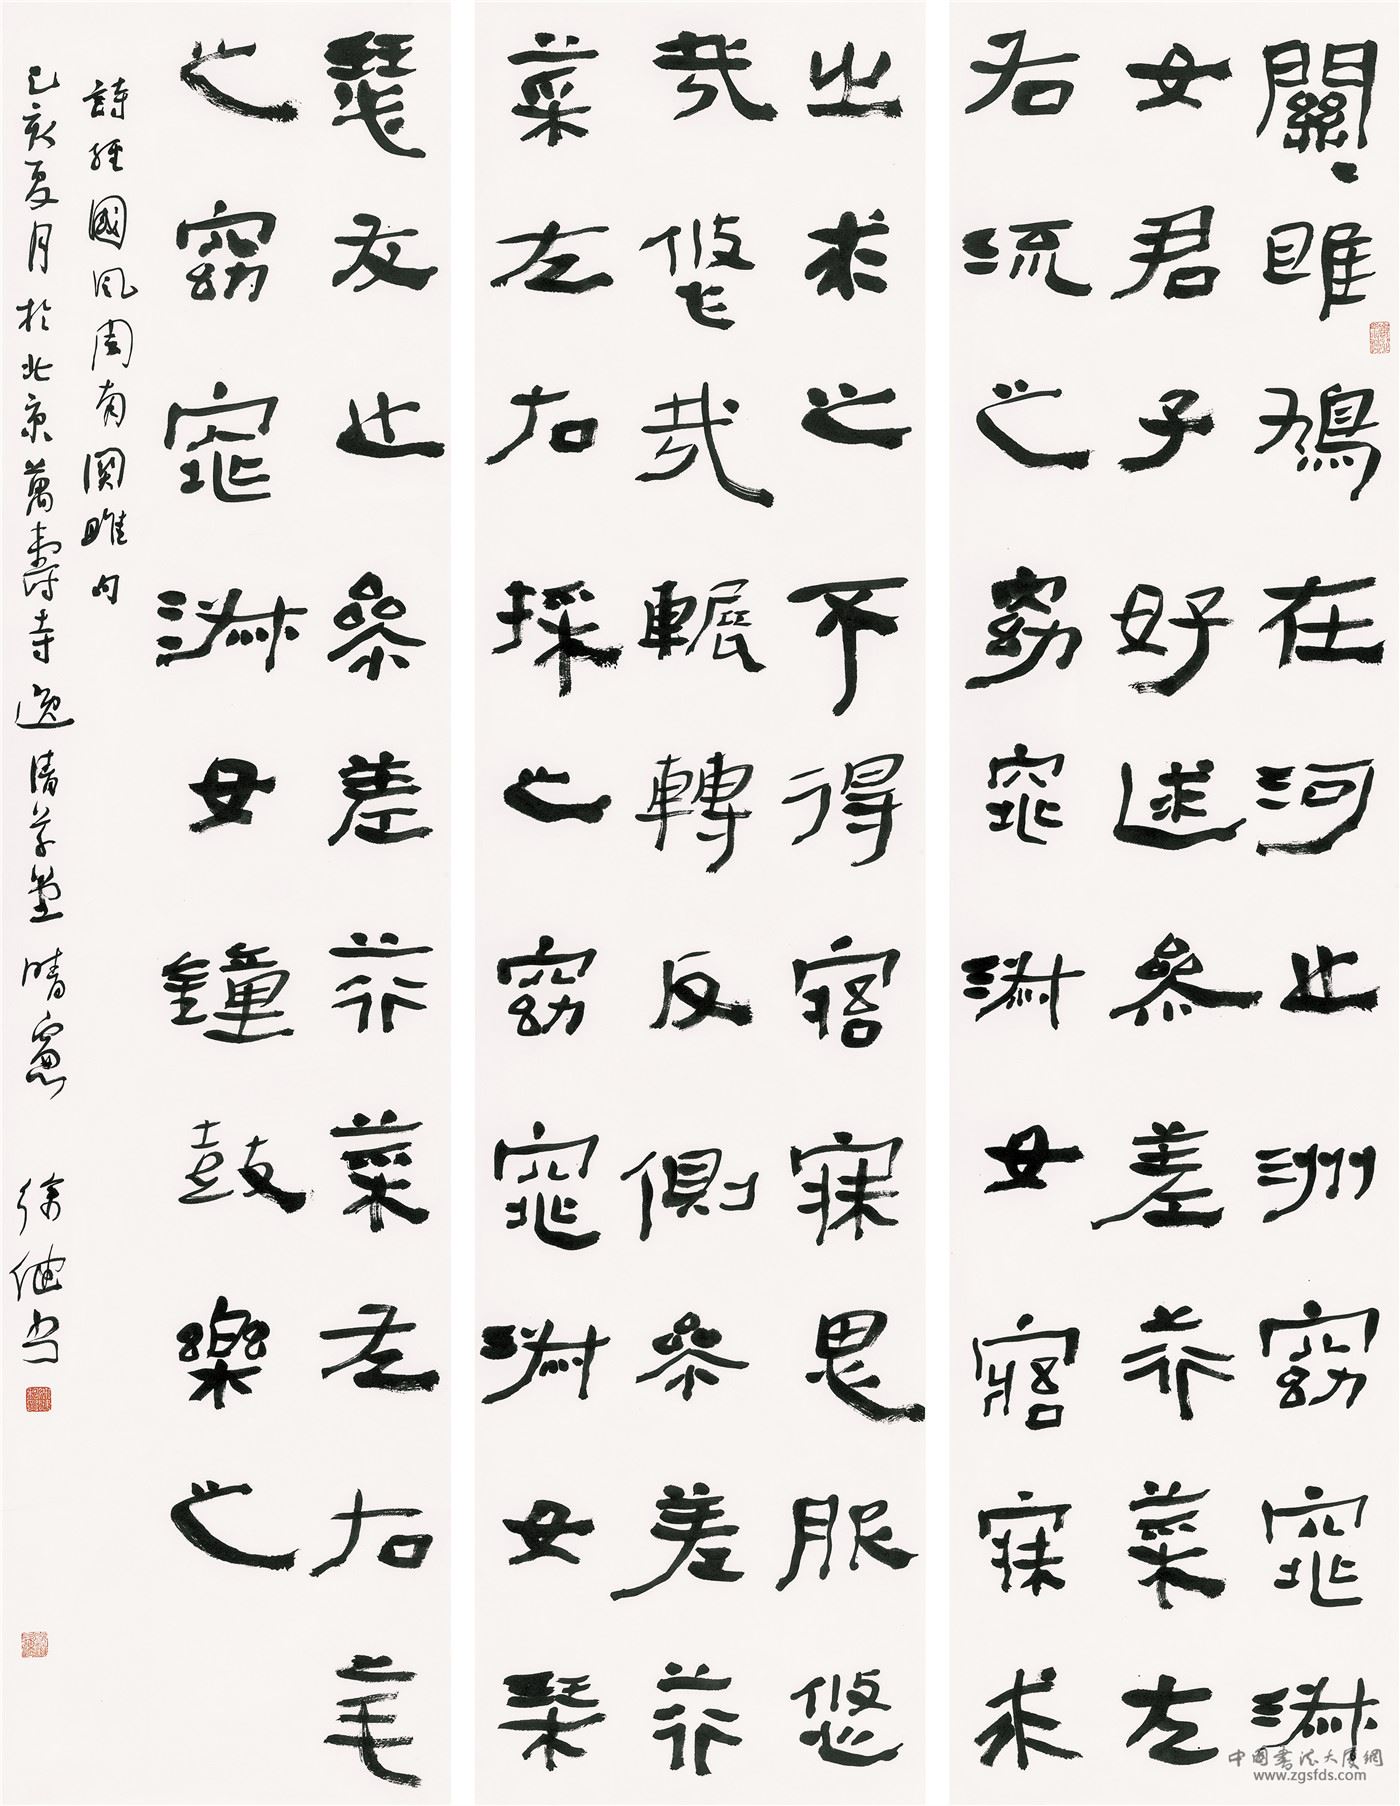 關〻雎鳩在河之洲窈窕淑
女君子好逑參差荇菜左
右流之窈窕淑女寤寐求
之求之不得寤寐思服悠
哉悠哉輾轉反側參差荇
菜左右採之窈窕淑女琴
瑟友之參差荇菜左右芼
之窈窕淑女鐘鼓樂之
詩經國風周南関雎句
己亥夏月於北京萬壽寺逸清草堂晴窻 徐書
中國書法大廈網
www.zgsfds.com